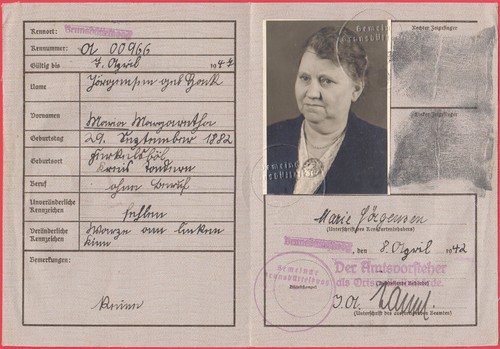 Kennort:
Kennummer: A 00966
Gültig bis 7. April 1947
Name Jörgensen geb. Hook
Vornamen Maria Margaretha
Geburtstag 29. September 1882
Geburtsort
Kreis Tondern
Beruf ohne Beruf
Unveränderliche Kennzeichen fehlen
Veränderliche Kennzeichen Warze am linken Kinn
Bemerkungen:
Keine
Rechter Zeigefinger
Linker Zeigefinger
Marie Jörgensen
(Unterschrift des Kennkarteninhabers)
, den 8. April 1942
Der Amtsvorsteher
als Ortspolizeibehörde.
(Ausstellende Behörde)
(Dienststempel)
I.A.
(Unterschrift des ausfertigenden Beamten)